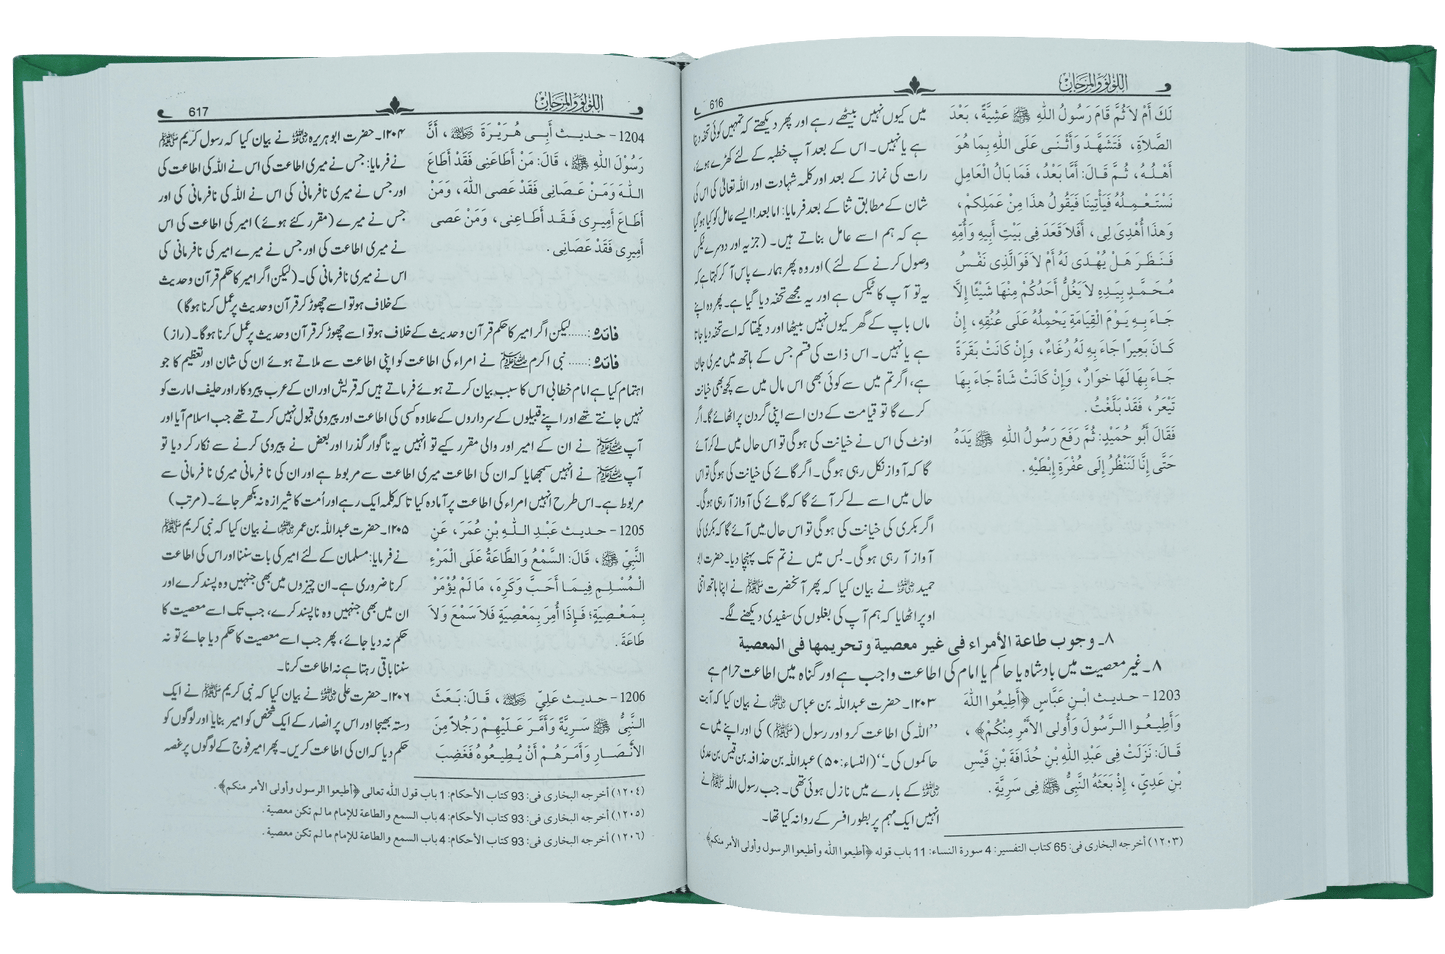 616 اللؤلؤ والمرجان
لَكَ أَمْ لاَ ثُمَّ قَامَ رَسُولُ اللهِ ﷺ عَشِيَّةً، بَعْدَ
الصَّلاَةِ، فَتَشَهَّدَ وَأَثْنَى عَلَى اللهِ بِمَا هُوَ
أَهْلُهُ، ثُمَّ قَالَ: أَمَّا بَعْدُ، فَمَا بَالُ الْعَامِلِ
نَسْتَعْمِلُهُ فَيَأْتِينَا فَيَقُولُ هذَا مِنْ عَمَلِكمْ،
وَهذَا أُهْدِىَ لِى، أَفَلاَ قَعَدَ فِى بَيْتِ أَبِيهِ وَأُمِّهِ
فَنَظَرَ هَلْ يُهْدَى لَهُ أَمْ لاَ فَوَالَّذِى نَفْسُ
مُحَمَّدٍ بِيَدِهِ لاَ يَغُلُّ أَحَدُكُمْ مِنْهَا شَيْئًا إِلاَّ
جَاءَ بِهِ يَوْمَ الْقِيَامَةِ يَحْمِلُهُ عَلَى عُنُقِهِ، إِنْ
كَانَ بَعِيرًا جَاءَ بِهِ لَهُ رُغَاءٌ، وَإِنْ كَانَتْ بَقَرَةً
جَاءَ بِهَا لَهَا خوَارٌ، وَإِنْ كَانَتْ شَاةً جَاءَ بِهَا
تَيْعَرُ، فَقَدْ بَلَّغْتُ.
فَقَالَ أَبُو حُمَيْدٍ: ثُمَّ رَفَعَ رَسُولُ اللهِ ﷺ يَدَهُ
حَتَّى إِنَّا لَنَنْظُرُ إِلَى عُفْرَةِ إِبْطَيْهِ.
میں کیوں نہیں بیٹھے رہے اور پھر دیکھتے کہ تمہیں کوئی تحفہ دیتا
ہے یا نہیں۔ اس کے بعد آپ خطبہ کے لئے کھڑے ہوئے،
رات کی نماز کے بعد اور کلمہ شہادت اور اللہ تعالیٰ کی اس کی
شان کے مطابق ثنا کے بعد فرمایا: اما بعد! ایسے عامل کو کیا ہو گیا
ہے کہ ہم اسے عامل بناتے ہیں۔ (جزیہ اور دوسرے ٹیکس
وصول کرنے کے لئے) اور وہ پھر ہمارے پاس آ کر کہتا ہے کہ
یہ تو آپ کا ٹیکس ہے اور یہ مجھے تحفہ دیا گیا ہے۔ پھر وہ اپنے
ماں باپ کے گھر کیوں نہیں بیٹھا اور دیکھتا کہ اسے تحفہ دیا جاتا
ہے یا نہیں۔ اس ذات کی قسم جس کے ہاتھ میں میری جان
ہے، اگر تم میں سے کوئی بھی اس مال میں سے کچھ بھی خیانت
کرے گا تو قیامت کے دن اسے اپنی گردن پر اٹھائے گا۔ اگر
اونٹ کی اس نے خیانت کی ہوگی تو اس حال میں لے کر آئے
گا کہ آواز نکل رہی ہوگی۔ اگر گائے کی خیانت کی ہوگی تو اس
حال میں اسے لے کر آئے گا کہ گائے کی آواز آ رہی ہوگی۔
اگر بکری کی خیانت کی ہوگی تو اس حال میں آئے گا کہ بکری کی
آواز آ رہی ہوگی۔ بس میں نے تم تک پہنچا دیا۔ حضرت ابو
حمید نے بیان کیا کہ پھر آنحضرت ﷺ نے اپنا ہاتھ اتنی
اوپر اٹھایا کہ ہم آپ کی بغلوں کی سفیدی دیکھنے لگے۔
۸۔ وجوب طاعة الأمراء فى غير معصية وتحريمها فى المعصية
۸۔ غیر معصیت میں بادشاہ یا حاکم یا امام کی اطاعت واجب ہے اور گناہ میں اطاعت حرام ہے
1203 – حديث ابْنِ عَبَّاسٍ ﴿أَطِيعُوا اللهَ
وَأَطِيعُوا الرَّسُولَ وَأُولى الأَمْرِ مِنْكُمْ﴾،
قَالَ: نَزَلَتْ فِى عَبْدِ اللهِ بْنِ حُذَافَةَ بْنِ قَيْسِ
بْنِ عَدِىٍّ، إِذْ بَعَثَهُ النَّبِىُّ ﷺ فِى سَرِيَّةٍ.
۱۲۰۳۔ حضرت عبداللہ بن عباس نے بیان کیا کہ آیت
’’اللہ کی اطاعت کرو اور رسول (ﷺ) کی اور اپنے میں سے
حاکموں کی۔‘‘ (النساء: ۵۰) عبداللہ بن حذافہ بن قیس بن عدی
کے بارے میں نازل ہوئی تھی۔ جب رسول اللہ ﷺ نے
انہیں ایک مہم پر بطور افسر کے روانہ کیا تھا۔
(۱۲۰۳) أخرجه البخارى فى: 65 كتاب التفسير: 4 سورة النساء: 11 باب قوله ﴿أطيعوا الله وأطيعوا الرسول وأولى الأمر منكم﴾
617 اللؤلؤ والمرجان
1204 – حديث أَبِى هُرَيْرَةَ، أَنَّ
رَسُوْلَ اللهِ ﷺ، قَالَ: مَنْ أَطَاعَنِى فَقَدْ أَطَاعَ
اللهَ وَمَنْ عَصَانِى فَقَدْ عَصى اللهَ، وَمَنْ
أَطَاعَ أَمِيرِى فَقَد أَطَاعنِى، وَمَنْ عَصى
أَمِيرِى فَقَدْ عَصَانِى.
۱۲۰۴۔ حضرت ابو ہریرہ نے بیان کیا کہ رسول کریم ﷺ
نے فرمایا: جس نے میری اطاعت کی اس نے اللہ کی اطاعت کی
اور جس نے میری نافرمانی کی اس نے اللہ کی نافرمانی کی اور
جس نے میرے (مقرر کئے ہوئے) امیر کی اطاعت کی اس
نے میری اطاعت کی اور جس نے میرے امیر کی نافرمانی کی
اس نے میری نافرمانی کی۔ (لیکن اگر امیر کا حکم قرآن و حدیث
کے خلاف ہو تو اسے چھوڑ کر قرآن و حدیث پر عمل کرنا ہوگا)
فائدہ:......لیکن اگر امیر کا حکم قرآن و حدیث کے خلاف ہو تو اسے چھوڑ کر قرآن و حدیث پر عمل کرنا ہوگا۔ (راز)
فائدہ:...... نبی اکرم ﷺ نے امراء کی اطاعت کو اپنی اطاعت سے ملاتے ہوئے ان کی شان اور تعظیم کا جو
اہتمام کیا ہے امام خطابی اس کا سبب بیان کرتے ہوئے فرماتے ہیں کہ قریش اور ان کے عرب پیروکار اور حلیف امارت کو
نہیں جانتے تھے اور اپنے قبیلوں کے سرداروں کے علاوہ کسی کی اطاعت اور پیروی قبول نہیں کرتے تھے جب اسلام آیا اور
آپ ﷺ نے ان کے امیر اور والی مقرر کیے تو انہیں یہ ناگوار گذرا اور بعض نے پیروی کرنے سے انکار کر دیا تو
آپ ﷺ نے انہیں سمجھایا کہ ان کی اطاعت میری اطاعت سے مربوط ہے اور ان کی نافرمانی میری نافرمانی سے
مربوط ہے۔ اس طرح انہیں امراء کی اطاعت پر آمادہ کیا تا کہ کلمہ ایک رہے اور اُمت کا شیرازہ نہ بکھر جائے۔ (مرتب)
1205 – حديث عَبْدِ اللهِ بْنِ عُمَرَ، عَنِ
النَّبِىِّ ﷺ، قَالَ: السَّمْعُ وَالطَّاعَةُ عَلَى الْمَرْءِ
الْمُسْلِمِ فِيمَا أَحَبَّ وَكَرِهَ، مَا لَمْ يُؤْمَرْ
بِمَعْصِيَةٍ؛ فَإِذَا أُمِرَ بِمَعْصِيَةٍ فَلاَ سَمْعَ وَلاَ
طَاعَةَ.
۱۲۰۵۔ حضرت عبداللہ بن عمر نے بیان کیا کہ نبی کریم ﷺ
نے فرمایا: مسلمان کے لئے امیر کی بات سننا اور اس کی اطاعت
کرنا ضروری ہے۔ ان چیزوں میں بھی جنہیں وہ پسند کرے اور
ان میں بھی جنہیں وہ ناپسند کرے، جب تک اسے معصیت کا
حکم نہ دیا جائے، پھر جب اسے معصیت کا حکم دیا جائے تو نہ
سننا باقی رہتا ہے نہ اطاعت کرنا۔
1206 – حديث عَلِىٍّ، قَالَ: بَعَثَ
النَّبِىُّ ﷺ سَرِيَّةً وَأَمَّرَ عَلَيْهِمْ رَجُلاً مِنَ
الأَنْصَارِ وَأَمَرَهُمْ أَنْ يُطِيعُوهُ فَغَضِبَ
۱۲۰۶۔ حضرت علی نے بیان کیا کہ نبی کریم ﷺ نے ایک
دستہ بھیجا اور اس پر انصار کے ایک شخص کو امیر بنایا اور لوگوں کو
حکم دیا کہ ان کی اطاعت کریں۔ پھر امیر فوج کے لوگوں پر غصہ
(۱۲۰٤) أخرجه البخارى فى: 93 كتاب الأحكام: 1 باب قول الله تعالى ﴿أطيعوا الرسول وأولى الأمر منكم﴾.
(۱۲۰٥) أخرجه البخارى فى: 93 كتاب الأحكام: 4 باب السمع والطاعة للإمام ما لم تكن معصية.
(۱۲۰٦) أخرجه البخارى فى: 93 كتاب الأحكام: 4 باب السمع والطاعة للإمام ما لم تكن معصية.